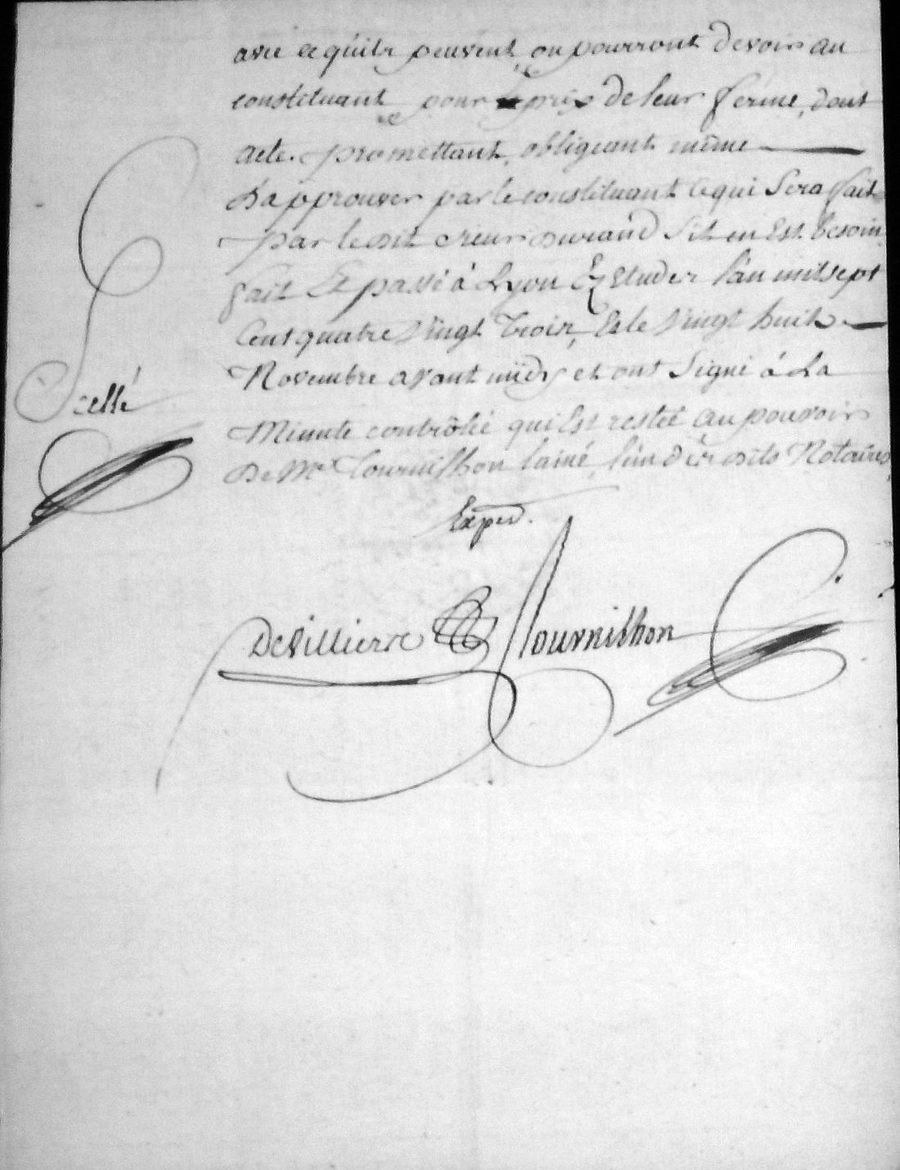 avec ce qu'ils peuvent ou pourront devoir au
constituant pour le prix de leur ferme, dont
acte. promettant, obligeant même
D'approuver par le constituant ce qui Sera fait
par ledit sieur Durand S'il en Est besoin
fait Et passé à Lyon Ez Etudes l'an mil sept
Cent quatre Vingt Trois, Et le Vingt huit
Novembre avant midy et ont Signé à La
Minute contrôlée qui Est restée au pouvoir
De Me. Tournilhon l'aîné, l'un des dits Notaires,
Scellé
Exped.
DeVillierre Tournilhon